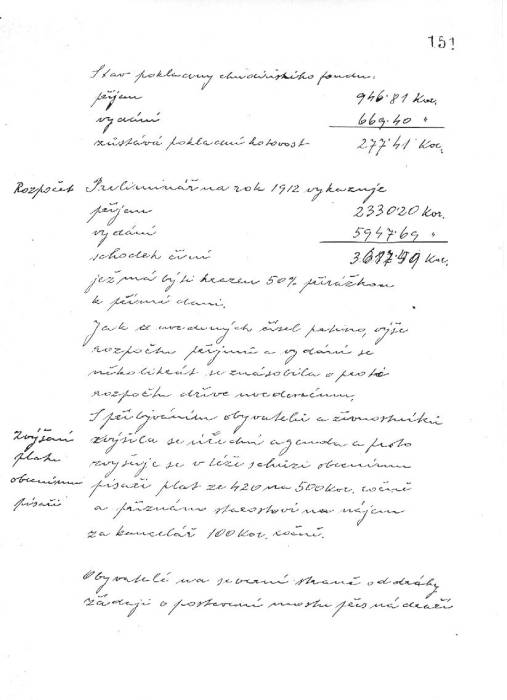 151
Stav pokladny chudinského fondu:
příjem 946·81 Kor.
vydání 669·40 "
zůstává pokladní hotovost 277·41 Kor.
Rozpočet Preliminář na rok 1912 vykazuje
příjem 2330·20 Kor.
vydání 5947·69 "
schodek činí 3617·49 Kor.
jež má býti hrazen 50% přirážkou
k přímé dani.
Jak z uvedených čísel patrno, výše
rozpočtu příjmů a vydání se
několikrát se znásobila o proti
rozpočtu dříve uvedenému.
S přibýváním obyvatelů a živnostníků
Zvýšení zvýšila se úřední agenda a proto
platu zvyšuje se v téže schůzi obecnímu
obecnímu písaři plat ze 420 na 500 Kor. ročně
písaři a přiznáno starostovi na nájem
za kancelář 100 Kor. ročně.
Obyvatelé na severní straně od dráhy
žádají o postavení mostu přes nádraží